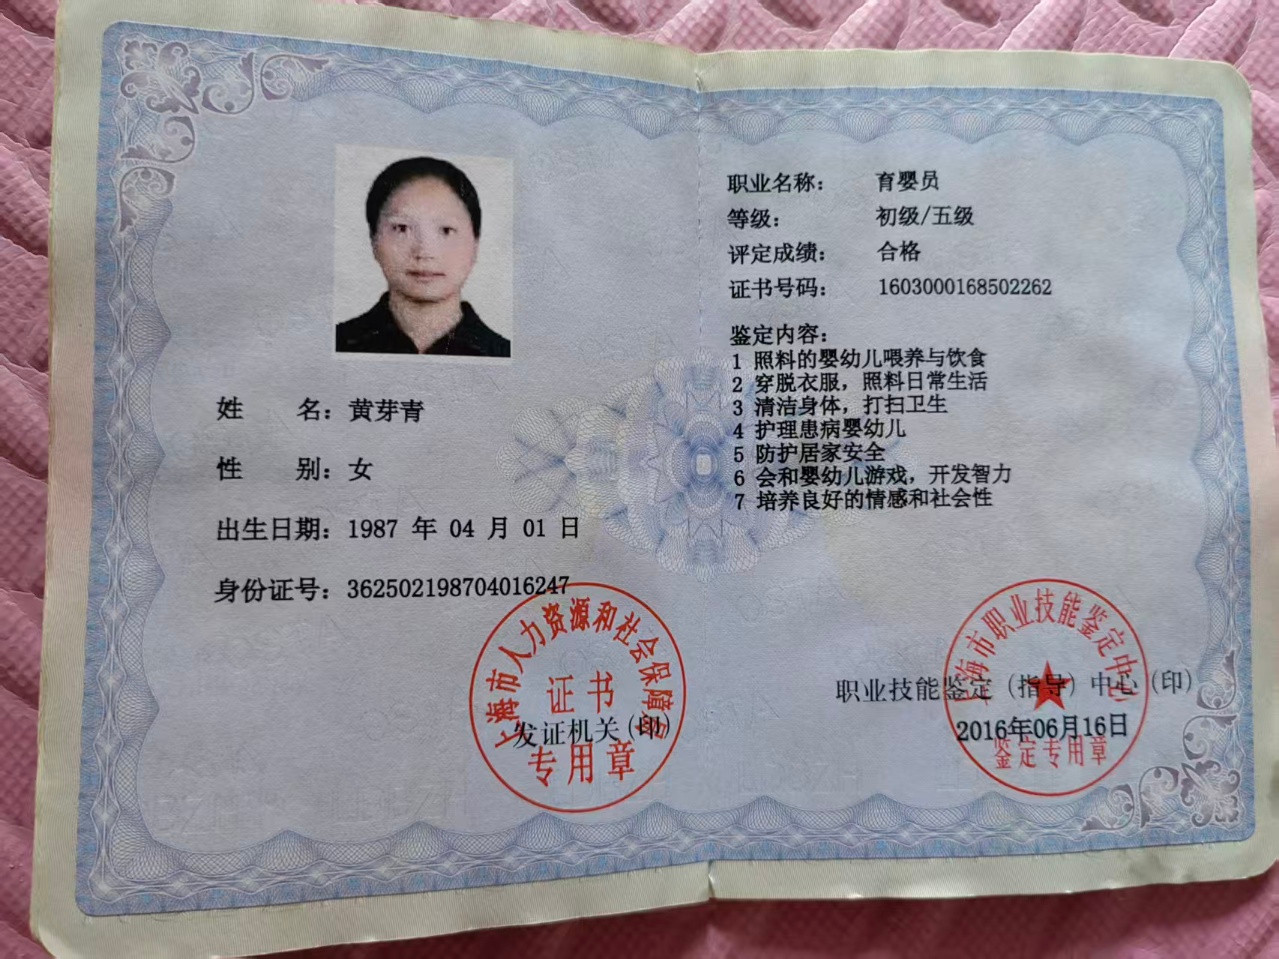 姓 名：黄芽青
性 别：女
出生日期：1987 年 04 月 01 日
身份证号：362502198704016247
上海市人力资源和社会保障局
证书
发证机关(印)
专用章
职业名称： 育婴员
等级： 初级/五级
评定成绩： 合格
证书号码： 1603000168502262
鉴定内容：
1 照料的婴幼儿喂养与饮食
2 穿脱衣服，照料日常生活
3 清洁身体，打扫卫生
4 护理患病婴幼儿
5 防护居家安全
6 会和婴幼儿游戏，开发智力
7 培养良好的情感和社会性
上海市职业技能鉴定中心
职业技能鉴定（指导）中心（印）
2016年06月16日
鉴定专用章